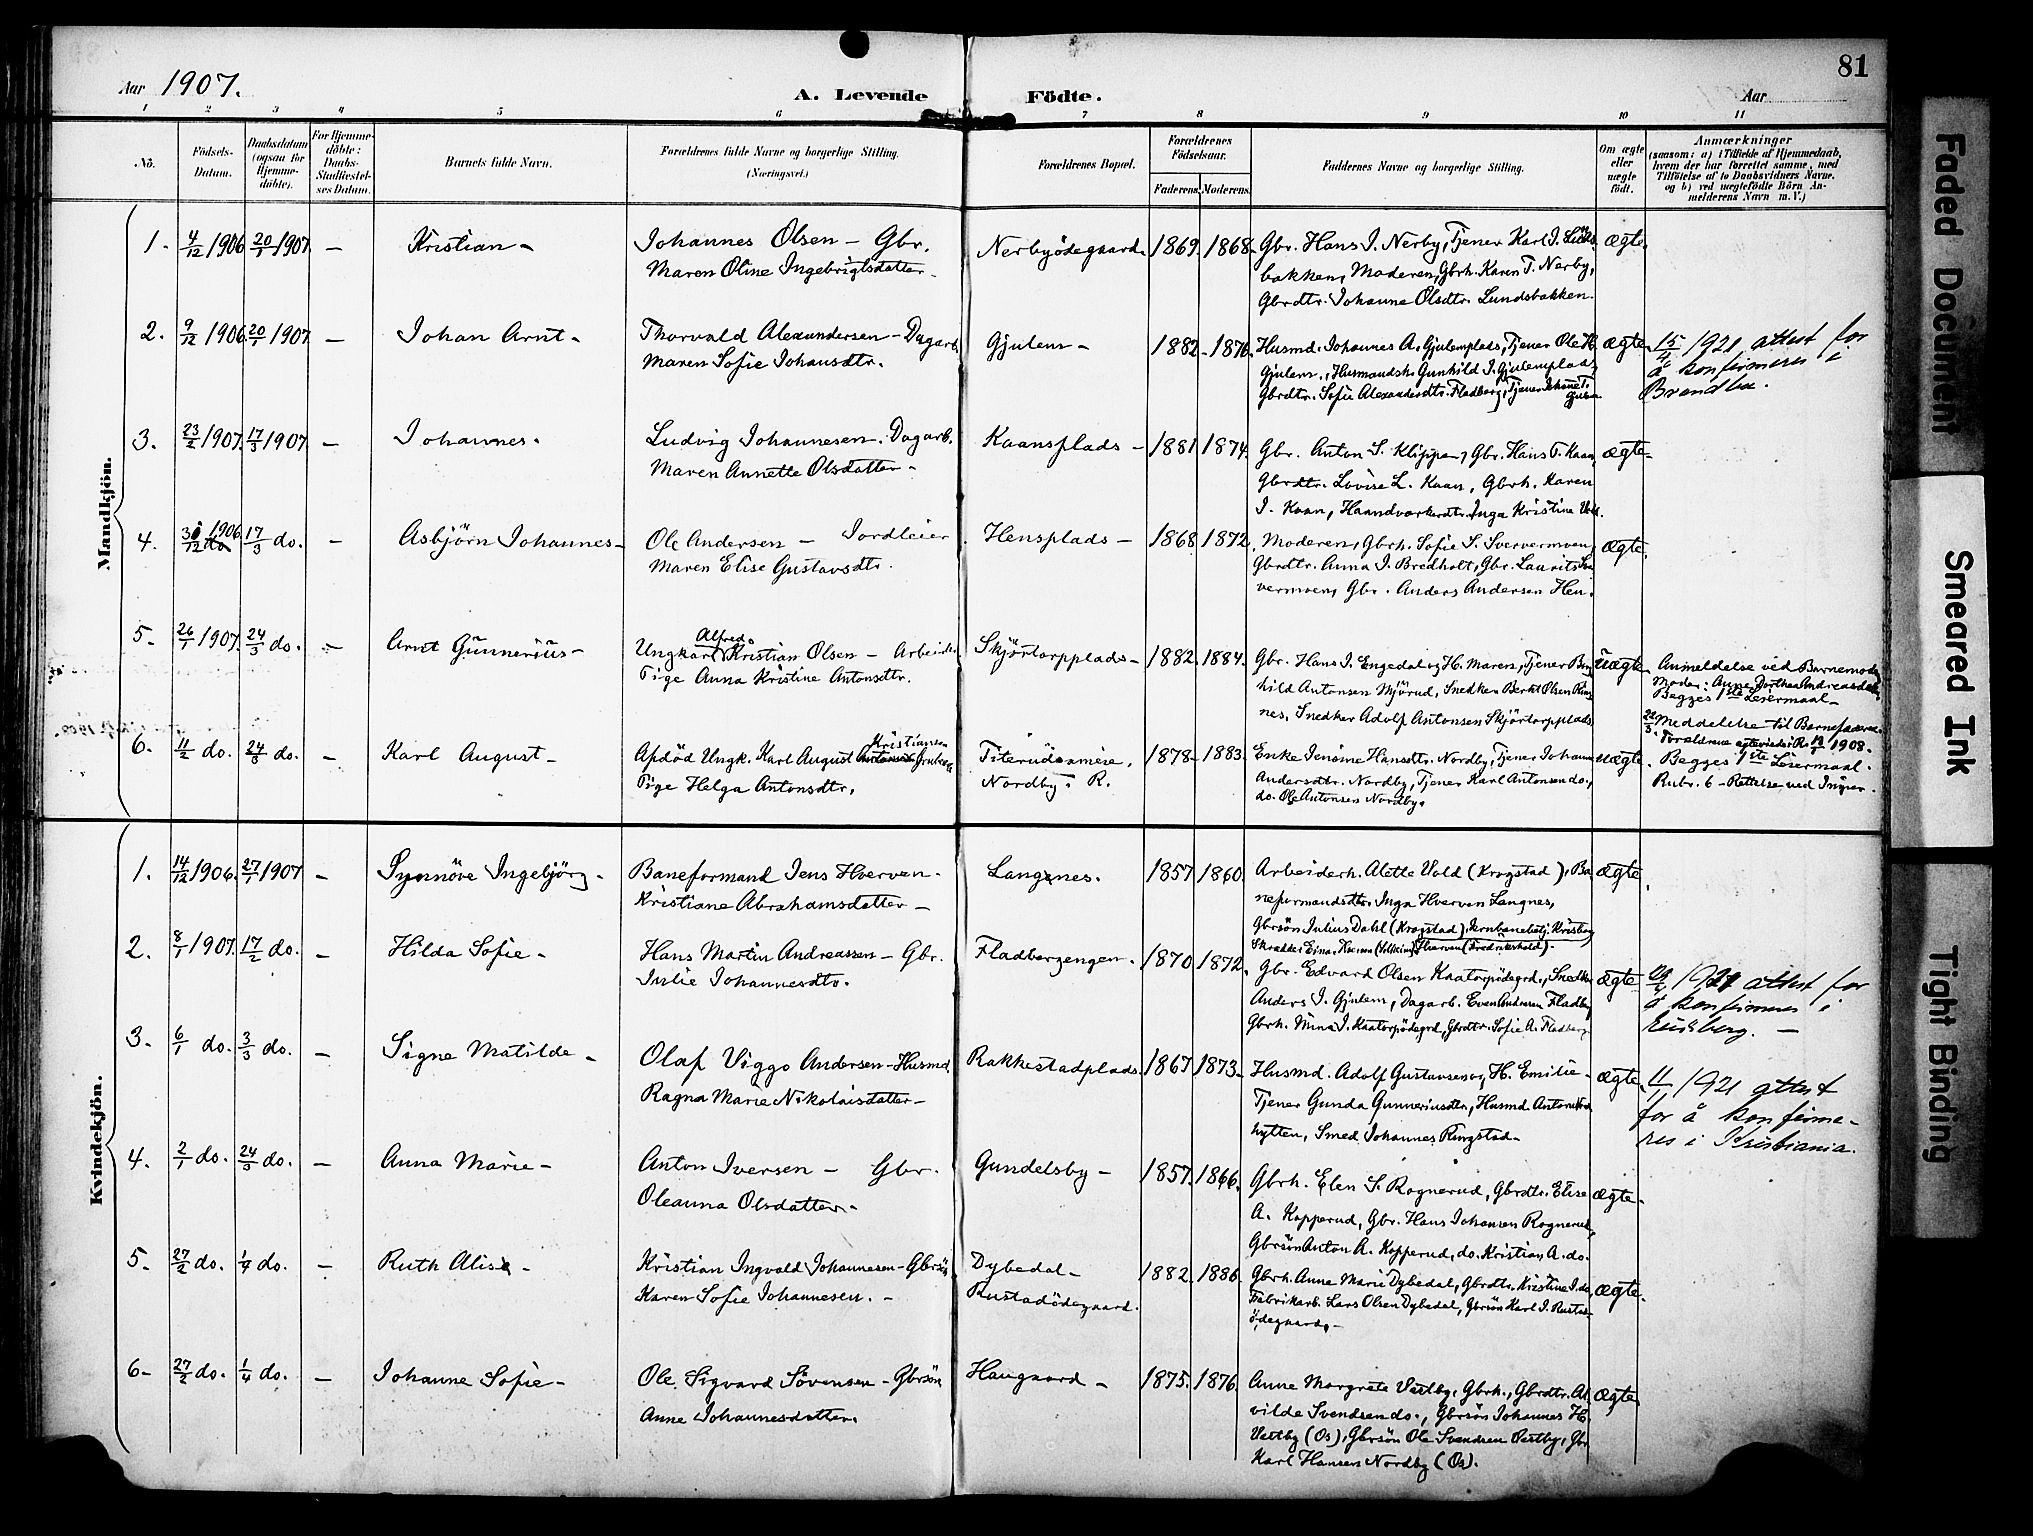 81
Aar 1907.
A. Levende Födte.
Aar
1 2 3 4 5 6 7 8 9 10 11
No.
Födsels-Datum.
Daabsdatum (ogsaa for Hjemme-döbte).
For Hjemme-döbte: Daabs-Stadfæstel-ses Datum.
Barnets fulde Navn.
Forældrenes fulde Navne og borgerlige Stilling. (Næringsvei.)
Forældrenes Bopæl.
Forældrenes Födselsaar.
Faderens. Moderens.
Faddernes Navne og borgerlige Stilling.
Om ægte eller uægte födt.
Anmærkninger
(saasom: a) i Tilfælde af Hjemmedaab,
hvem der har forrettet samme, med
Tilföielse af to Daabsvidners Navne.
og b) ved uægtefödte Börn An-
melderens Navn m.V.)
Mandkjön.
1. 4/12 1906 20/1 1907 – Kristian – Johannes Olsen – Gbr. Nerbyödegaard. 1869. 1868. Gbr. Hans I. Nerby, Tjener Karl I. ægte.
Maren Oline Ingebrigtsdatter – bakken, Moderen, Gbrh. Karen T. Nerby,
Gbrdtr. Johanne Olsdtr. Lundsbakken.
2. 9/12 1906. 20/1 1907. – Johan Arnt – Thorvald Alexandersen – Dagarb. Gjulem – 1882 – 1876. Husmd. Johannes A. Gjulemplads, Tjener Ole H. ægte. 15/4 1921 attest for
Maren Sofie Johansdtr. Gjulem, Husmandsk. Gunhild I. Gjulemplads, å konfirmeres i
Gbrdtr. Sofie Alexandersdtr. Fladberg, Tjener Gjulem Brandbu.
3. 23/2 1907. 17/3 1907 – Johannes. Ludvig Johannesen. Dagarb. Kaansplads – 1881 1874. Gbr. Anton S. Klippen, Gbr. Hans T. Kaan, ægte –
Maren Annette Olsdatter – Gbrdtr. Lovise L. Kaan, Gbrh. Karen
I. Kaan, Haandværkerdtr. Inga Kristine
4. 1906 17/3 do. – Asbjörn Johannes – Ole Andersen – Jordleier Hensplads – 1868 1872. Moderen, Gbrh. Sofie S. Sververmoen, ægte.
Maren Elise Gustavsdtr. Gbrdtr. Anna I. Bredholt, Gbr. Laurits
vermoen, Gbr. Anders Andersen Hen.
5. 26/1 1907. 24/3 do. – Arnt Gunnerius – Ungkarl Alfred Kristian Olsen – Arbeider Skjörtorpplads – 1882. 1884. Gbr. Hans I. Engedal og H. Maren, Tjener uægte Anmeldelse ved Barnemoder
Tige Anna Kristine Antonsdtr. hild Antonsen Mjörud, Snedker Bernt Olsen Moder: Anne Dorthea Andreasdatter
nes, Snedker Adolf Antonsen Skjörtorpplads Begges 1ste Leiermaal –
Meddelelse til Barnefaderen
Forældrene 1908.
6. 11/2 do. 24/3 do. – Karl August – Afdöd Ungk. Karl August Kristiansen Nordby. R. 1878 – 1883. Enke Jensine Hansdtr. Nordby, Tjener Johanne uægte. Begges 1ste Leiermaal.
Tige Helga Antonsdtr. Andersdtr. Nordby, Tjener Karl Antonsen do., Rubr. 6 – Rettelse ved
do. Ole Antonsen Nordby.
Kvindekjön.
1. 14/12 1906. 27/1 1907 – Synnöve Ingebjörg – Baneformand Jens Hverven – Langnes. 1857 1860. Arbeiderh. Alette Vold (Krogstad), Ba- ægte.
Kristiane Abrahamsdatter – neformandsdtr. Inga Hverven Langnes,
Gbrsön Julius Dahl (Krogstad),
Skrædder Hverven (Fredrikshald).
2. 8/1 1907. 17/2 do. – Hilda Sofie – Hans Martin Andreassen – Gbr. Fladbergengen. 1870 1872. Gbr. Edvard Olsen Kaatorpödegrd., Snedker ægte 1921 attest for
Julie Johannesdtr. Anders I. Gjulem, Dagarb. Even Andersen Fladberg å konfirmeres i
Gbrh. Mina I. Kaatorpödegrd., Gbrdtr. Sofie A. Fladberg Eidsberg. –
3. 6/1 do. 3/3 do. – Signe Matilde – Olaf Viggo Andersen – Husmd. Rakkestadplads. 1867 1873. Husmd. Adolf Gustavsen og H. Emilie – ægte. 11/1 1921 attest
Ragna Marie Nikolaisdatter – Tjener Gunda Gunneriusdtr., Husmd. Anton for å konfirme-
hytten, Smed Johannes Ringstad – res i Kristiania.
4. 2/1 do. 24/3 do. – Anna Marie – Anton Iversen – Gbr. Gundelsby – 1857. 1866. Gbrh. Elen S. Rognerud, Gbrdtr. Elise ægte –
Oleanna Olsdatter – A. Kopperud, Gbr. Hans Johansen Rognerud,
Gbrsön Anton A. Kopperud, do. Kristian A. do.
5. 27/2 do. 1/4 do. – Ruth Alise – Kristian Ingvald Johannesen – Gbrsön Dybedal – 1882. 1886. Gbrh. Anne Marie Dybedal, Gbrdtr. Kristine I. do. ægte.
Karen Sofie Johannesen. – Rustadödegaard. Fabrikarb. Lars Olsen Dybedal, Gbrsön Karl I. Rustad-
ödegaard. –
6 – 27/2 do. 1/4 do. – Johanne Sofie – Ole Sigvard Sörensen – Gbrsön Haugaard – 1875. 1876. Anne Margrete Vestby, Gbrh., Gbrdtr. Al- ægte
Anne Johannesdatter. vilde Svendsen do., Gbrsön Johannes H.
Vestby (Os), Gbrsön Ole Svendsen Vestby, Gbr.
Karl Hansen Nordby (Os).
Faded Document
Smeared Ink
Tight Binding